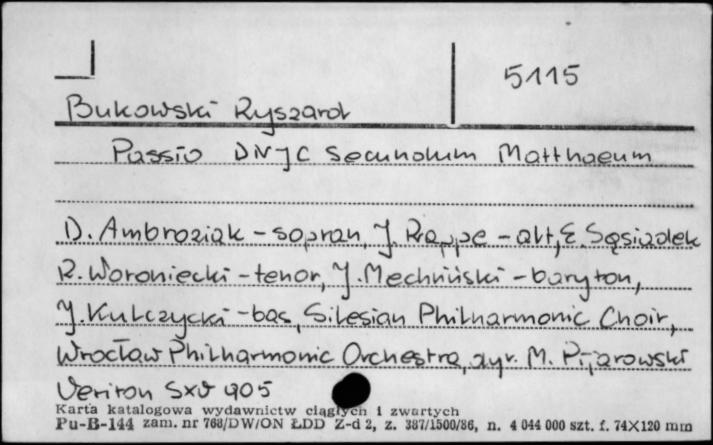 5115
Bukowski Ryszard
Passio DNJC Secundum Matthaeum
D. Ambroziak - sopran, J. Rappe - alt, E. Sąsiadek
R. Woroniecki - tenor, J. Mechliński - baryton,
J. Kulczycki - bas, Silesian Philharmonic Choir,
Wrocław Philharmonic Orchestra, dyr. M. Pijarowski
Veriton SXV 905
Karta katalogowa wydawnictw ciągłych i zwartych
Pu-B-144 zam. nr 768/DW/ON ŁDD Z-d 2, z. 387/1500/86, n. 4 044 000 szt. f. 74X120 mm